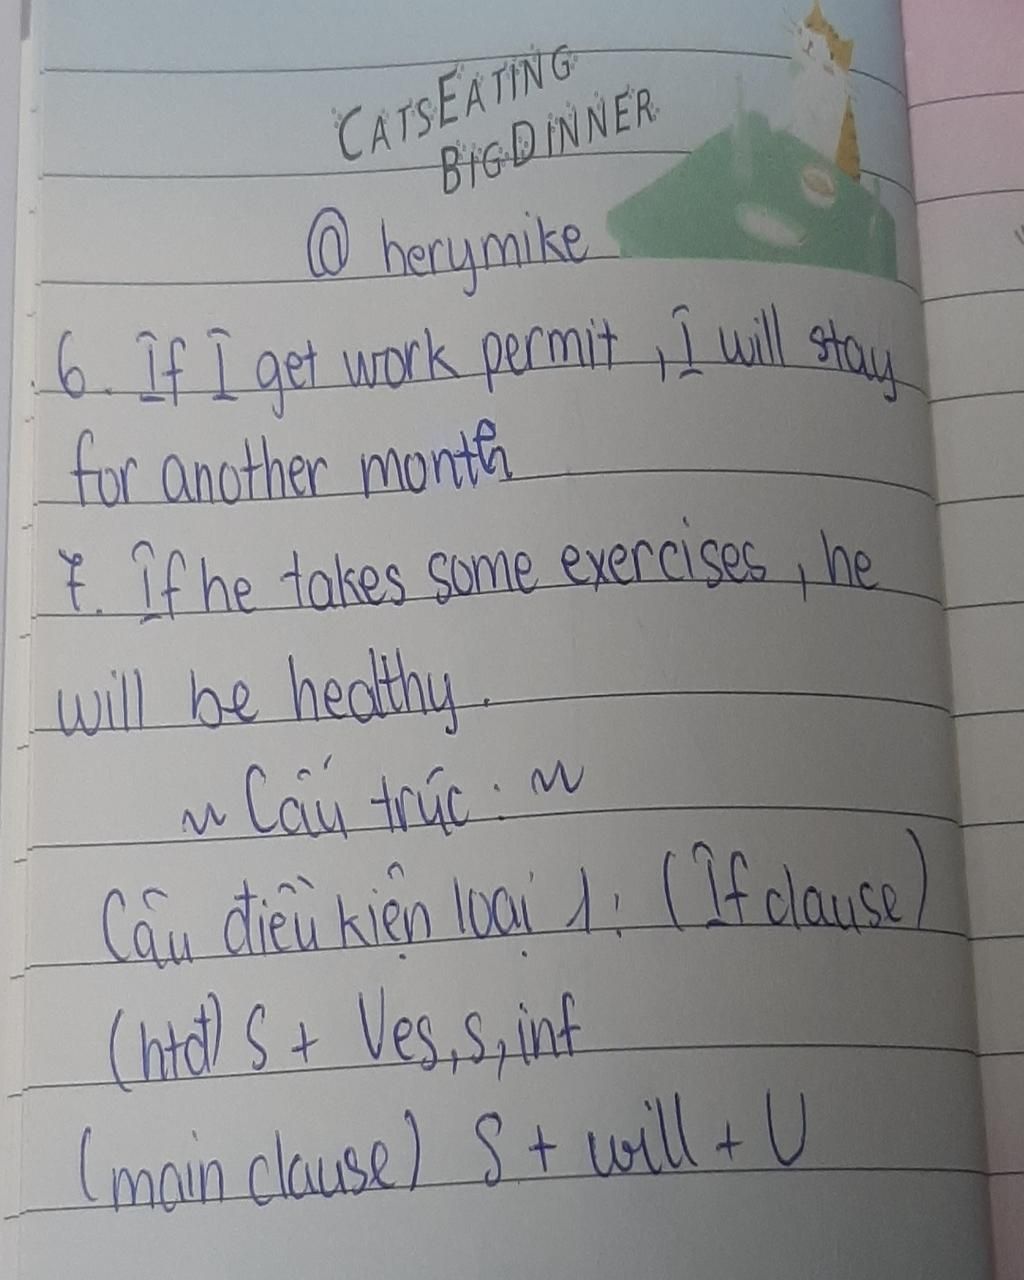 CATS EATING
BIG DINNER
@ herymike
6. If I get work permit, I will stay
for another month
7. If he takes some exercises, he
will be healthy.
~ Cấu trúc: ~
Câu điều kiện loại 1: (If clause)
(htđ) S + Ves,s,inf
(main clause) S + will + V